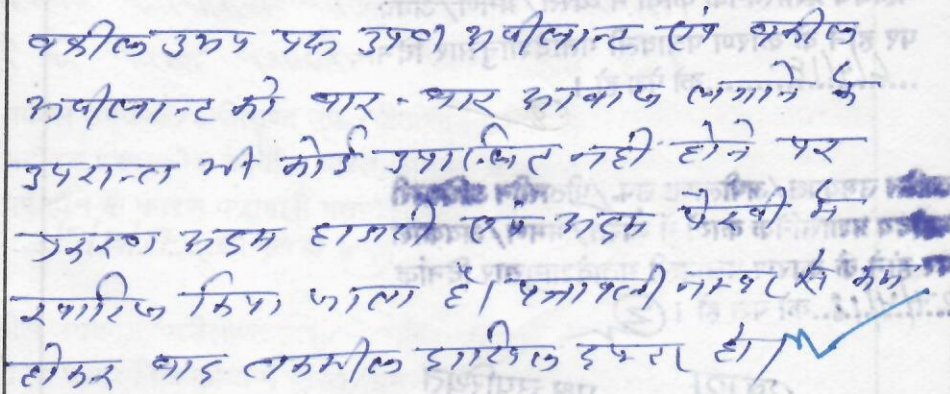 वकील उभय पक्ष उप0 अपीलान्ट एवं वकील
अपीलान्ट को बार-बार आवाज लगाने के
उपरान्त भी कोई उपस्थित नही होने पर
प्रकरण अदम हाजरी एवं अदम पैरवी में
खारिज किया जाता है। पत्रावली नम्बर से कम
होकर बाद तकमील दाखिल दफ्तर हो।